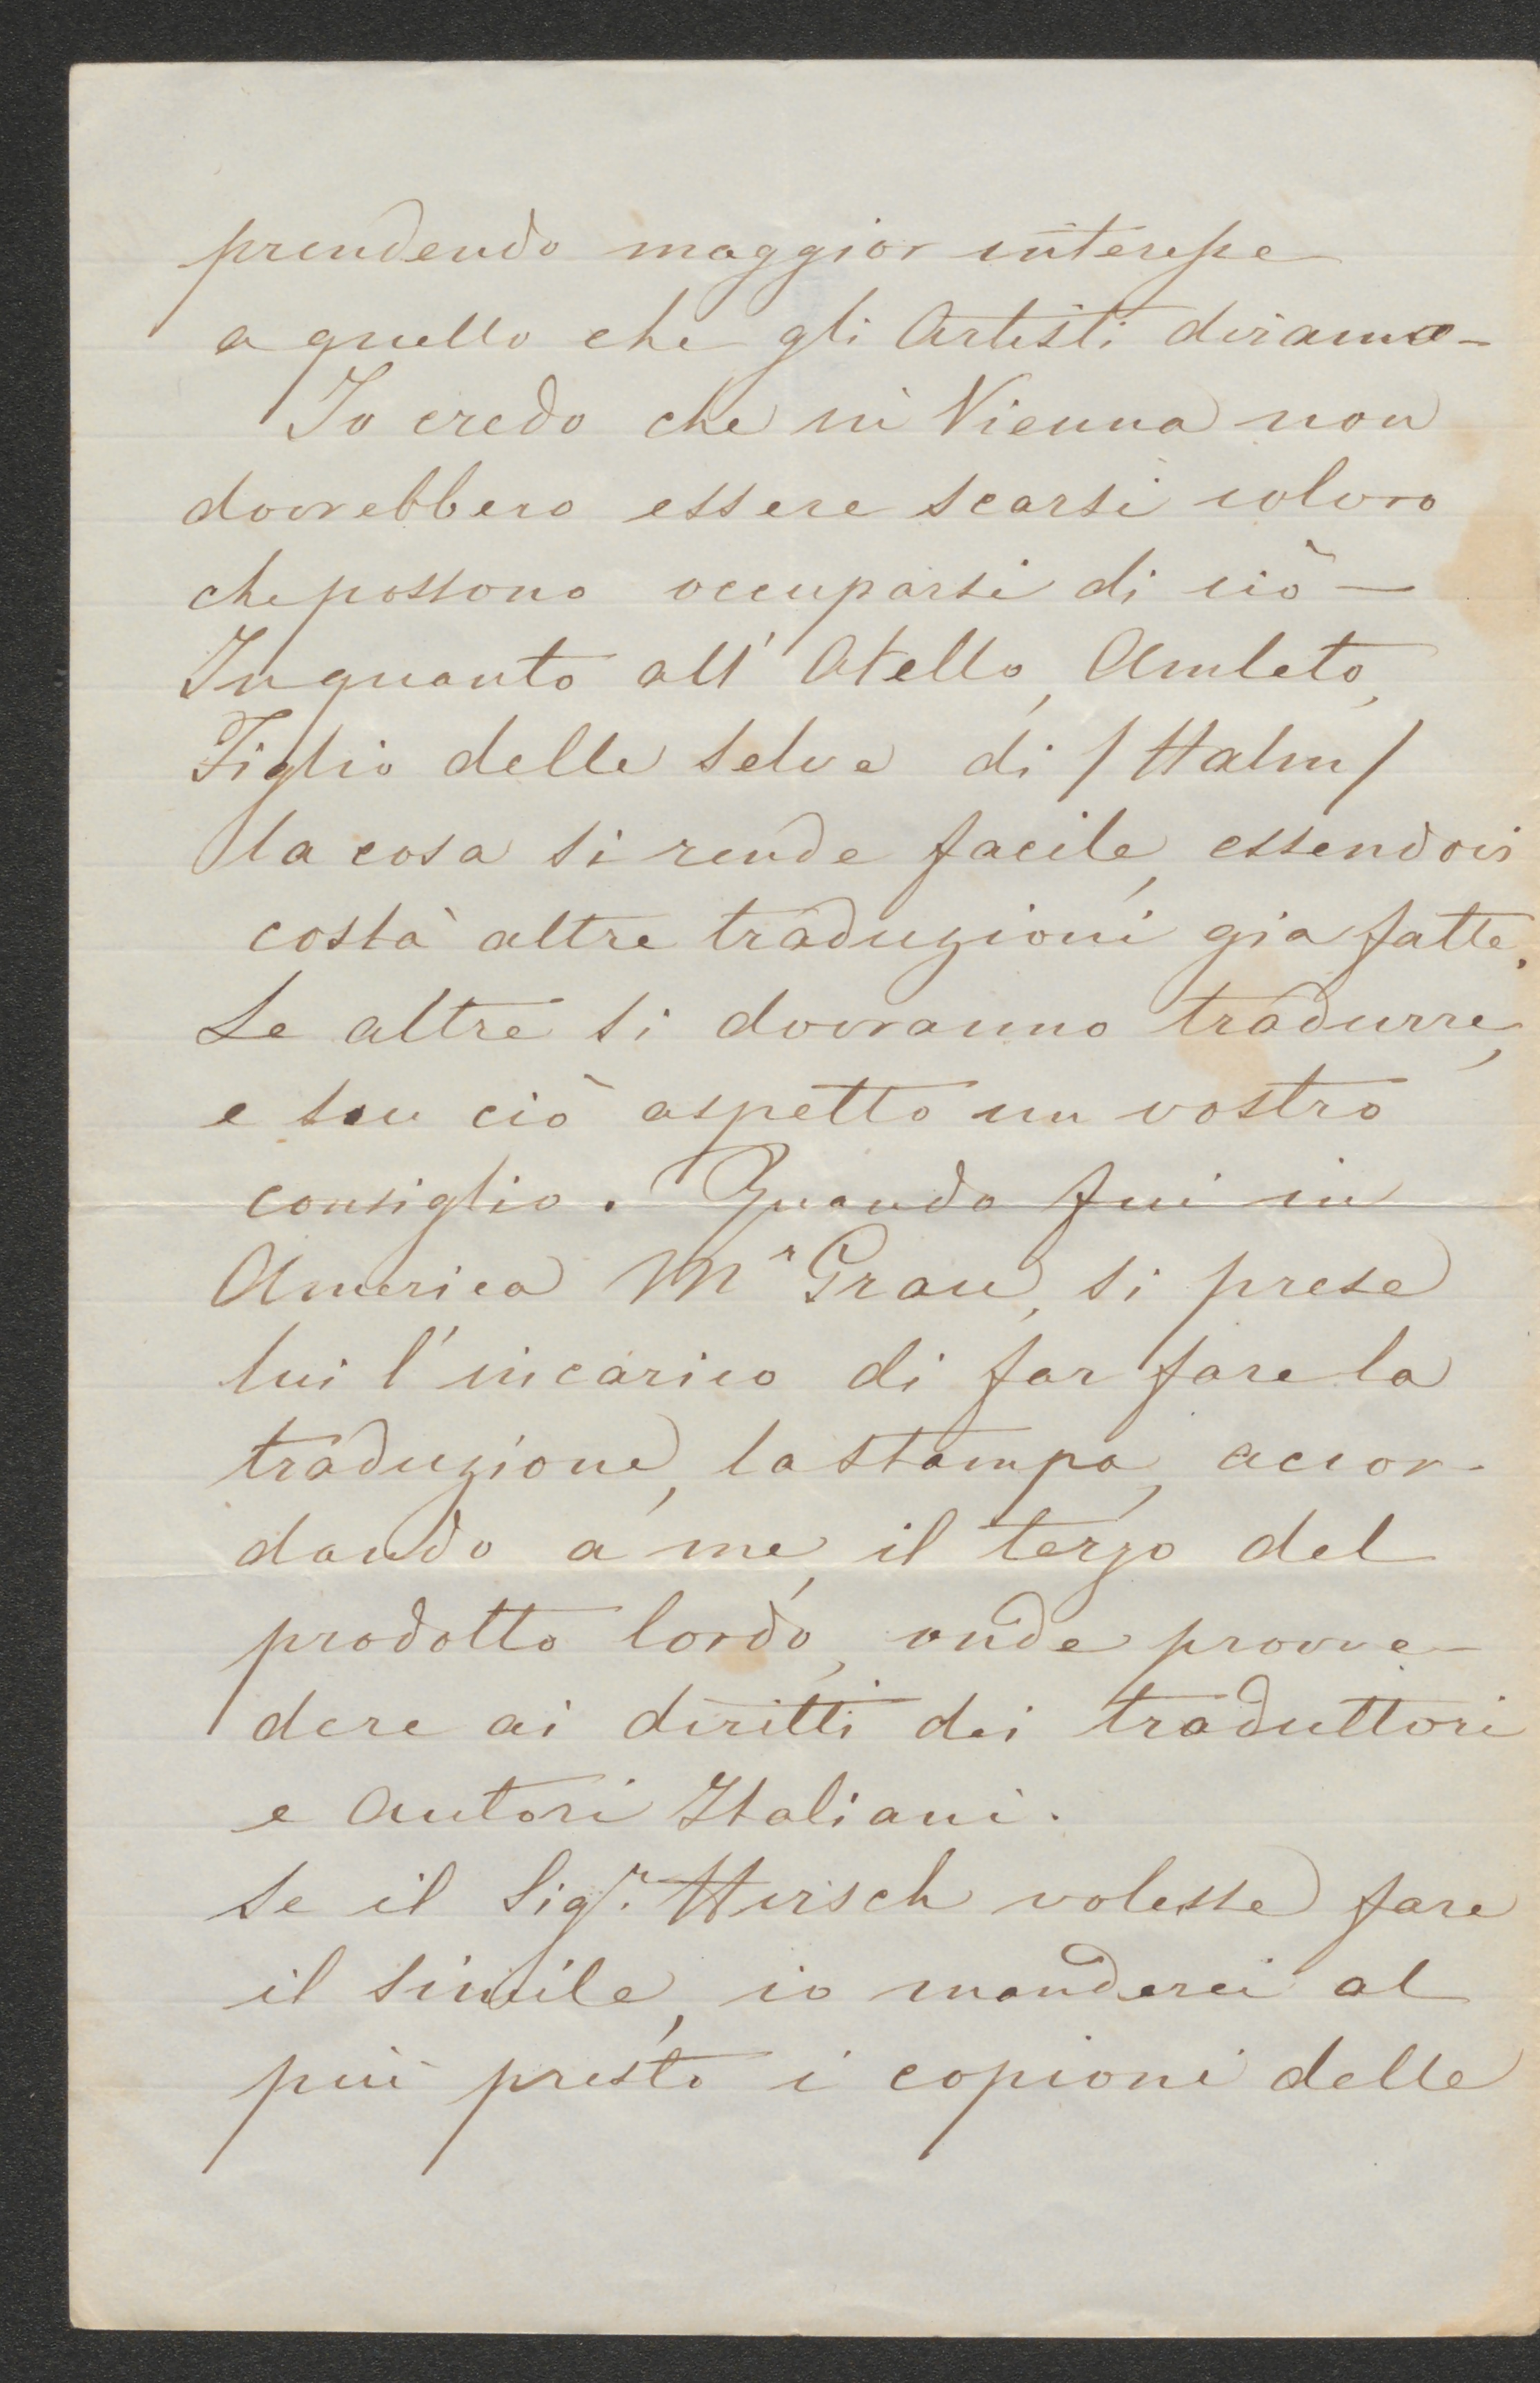 prendendo maggior interesse
a quello che gli Artisti diranno -
Io credo che in Vienna non
dovrebbero essere scarsi coloro
che possono occuparsi di ciò —
In quanto all' Otello, Amleto,
Figlio delle Selve di / Halm /
la cosa si rende facile, essendovi
costà altre traduzioni gia fatte.
Le altre si dovranno tradurre,
e su ciò aspetto un vostro
consiglio. Quando fui in
America Mr Grau, si prese
lui l'incarico di far fare la
traduzione, la stampa, accor-
dando a me, il terzo del
prodotto lordo, onde provve-
dere ai diritti dei traduttori
e autori Italiani.
Se il Sigr. Hirsch volesse fare
il simile, io manderei al
più presto i copioni delle